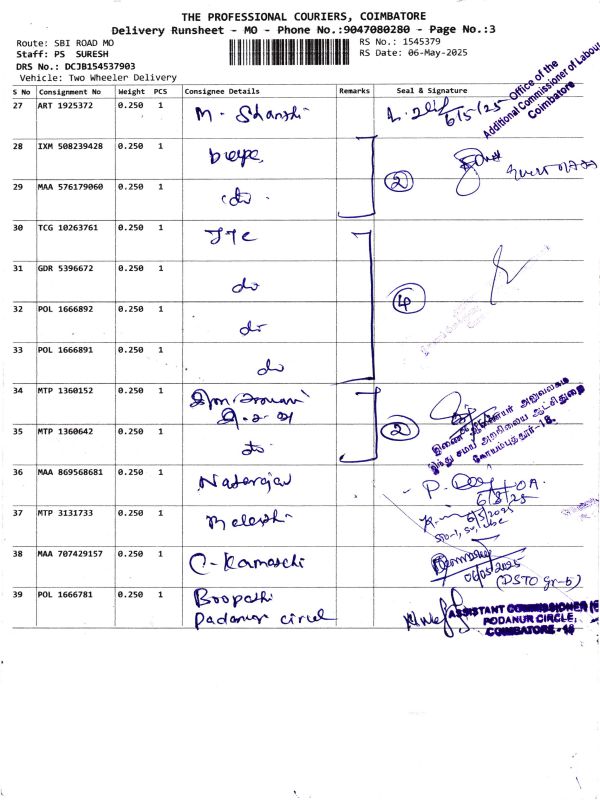 THE PROFESSIONAL COURIERS, COIMBATORE
Delivery Runsheet - MO - Phone No.:9047080280 - Page No.:3
Route: SBI ROAD MO
RS No.: 1545379
Staff: PS SURESH
RS Date: 06-May-2025
DRS No.: DCJB154537903
Vehicle: Two Wheeler Delivery
Office of the
Additional Commissioner of Labour
Coimbatore
S No Consignment No Weight PCS Consignee Details Remarks Seal & Signature
27 ART 1925372 0.250 1 M. 6/5/25
28 IXM 508239428 0.250 1
29 MAA 576179060 0.250 1 do ②
30 TCG 10263761 0.250 1
31 GDR 5396672 0.250 1 do ④
32 POL 1666892 0.250 1 do
33 POL 1666891 0.250 1 do
34 MTP 1360152 0.250 1
இணை ஆணையர் அலுவலகம்
இந்து சமய அறநிலைய ஆட்சித்துறை
கோயம்புத்தூர்-18.
35 MTP 1360642 0.250 1 do ②
36 MAA 869568681 0.250 1 Natarajan
37 MTP 3131733 0.250 1 6/5/2025
38 MAA 707429157 0.250 1 C. Kamatchi 06/05/2025
39 POL 1666781 0.250 1 Boopathi
Padanur circel
ASSISTANT COMMISSIONER
PODANUR CIRCLE,
COIMBATORE - 18